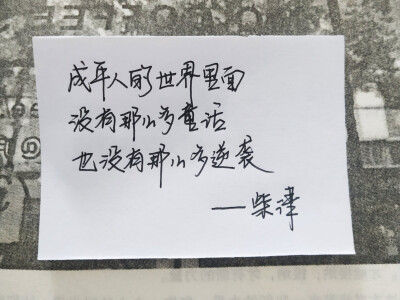 成年人的世界里面
没有那么多童话
也没有那么多逆袭
——柴津